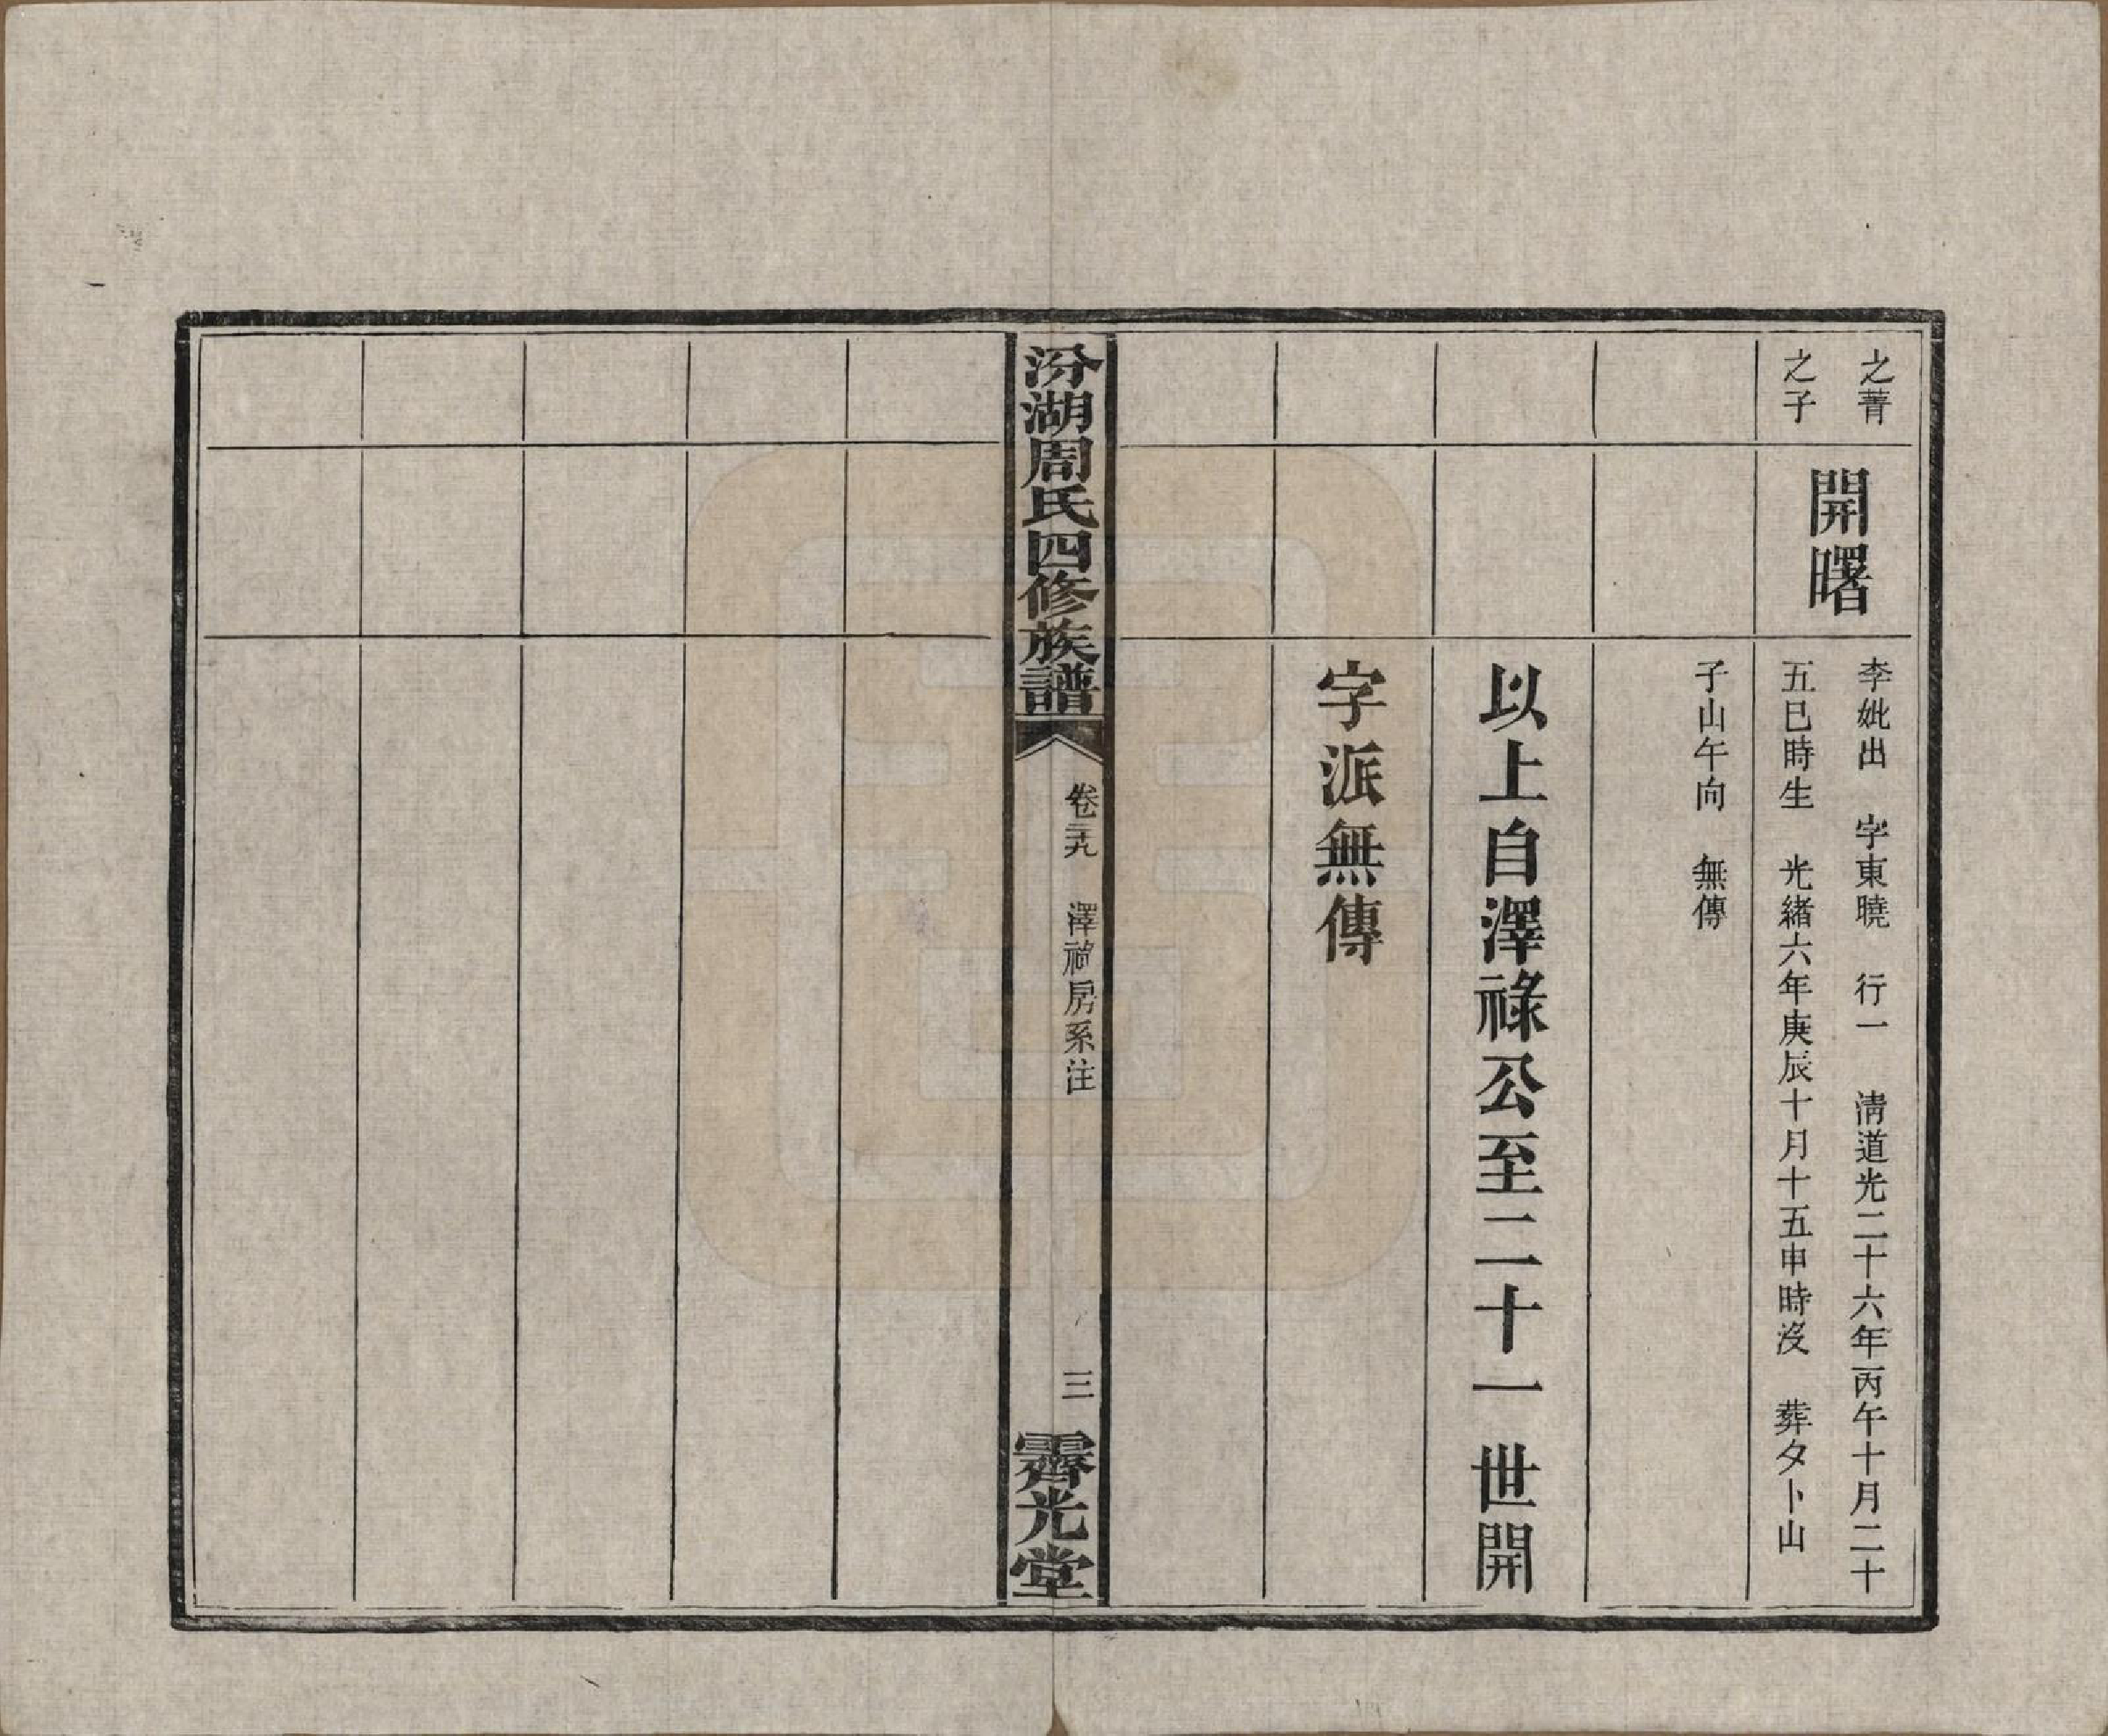 之菁
之子
開曙
李妣出　字東曉　行一　清道光二十六年丙午十月二十
五巳時生　光緒六年庚辰十月十五申時沒　葬夕卜山
子山午向　無傳
以上自澤祿公至二十一世開
字派無傳
汾湖周氏四修族譜
卷二十九　澤祠房系注
三
霽光堂